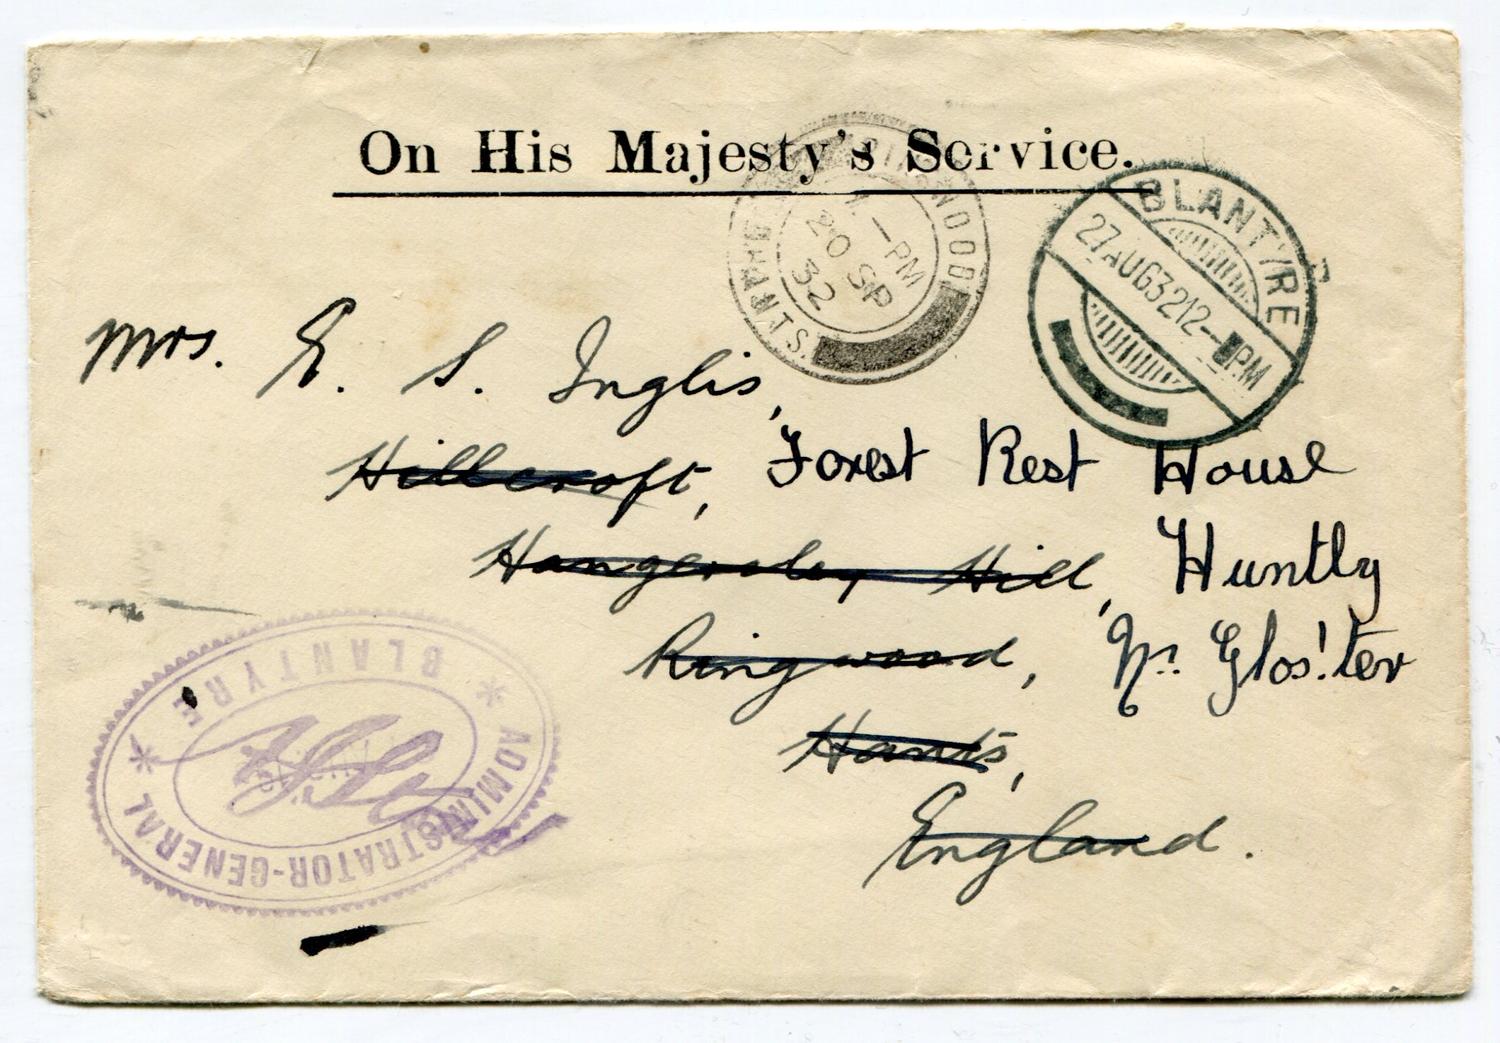 On His Majesty's Service.
RINGWOOD
HANTS.
-PM
20 SP
32
BLANTYRE
27AUG3212-PM
Mrs. E. S. Inglis,
Hillcroft, Forest Rest House
Hangersley Hill, Huntly
Ringwood, Nr. Glos'ter
Hants,
England.
* BLANTYRE *
ADMINISTRATOR-GENERAL